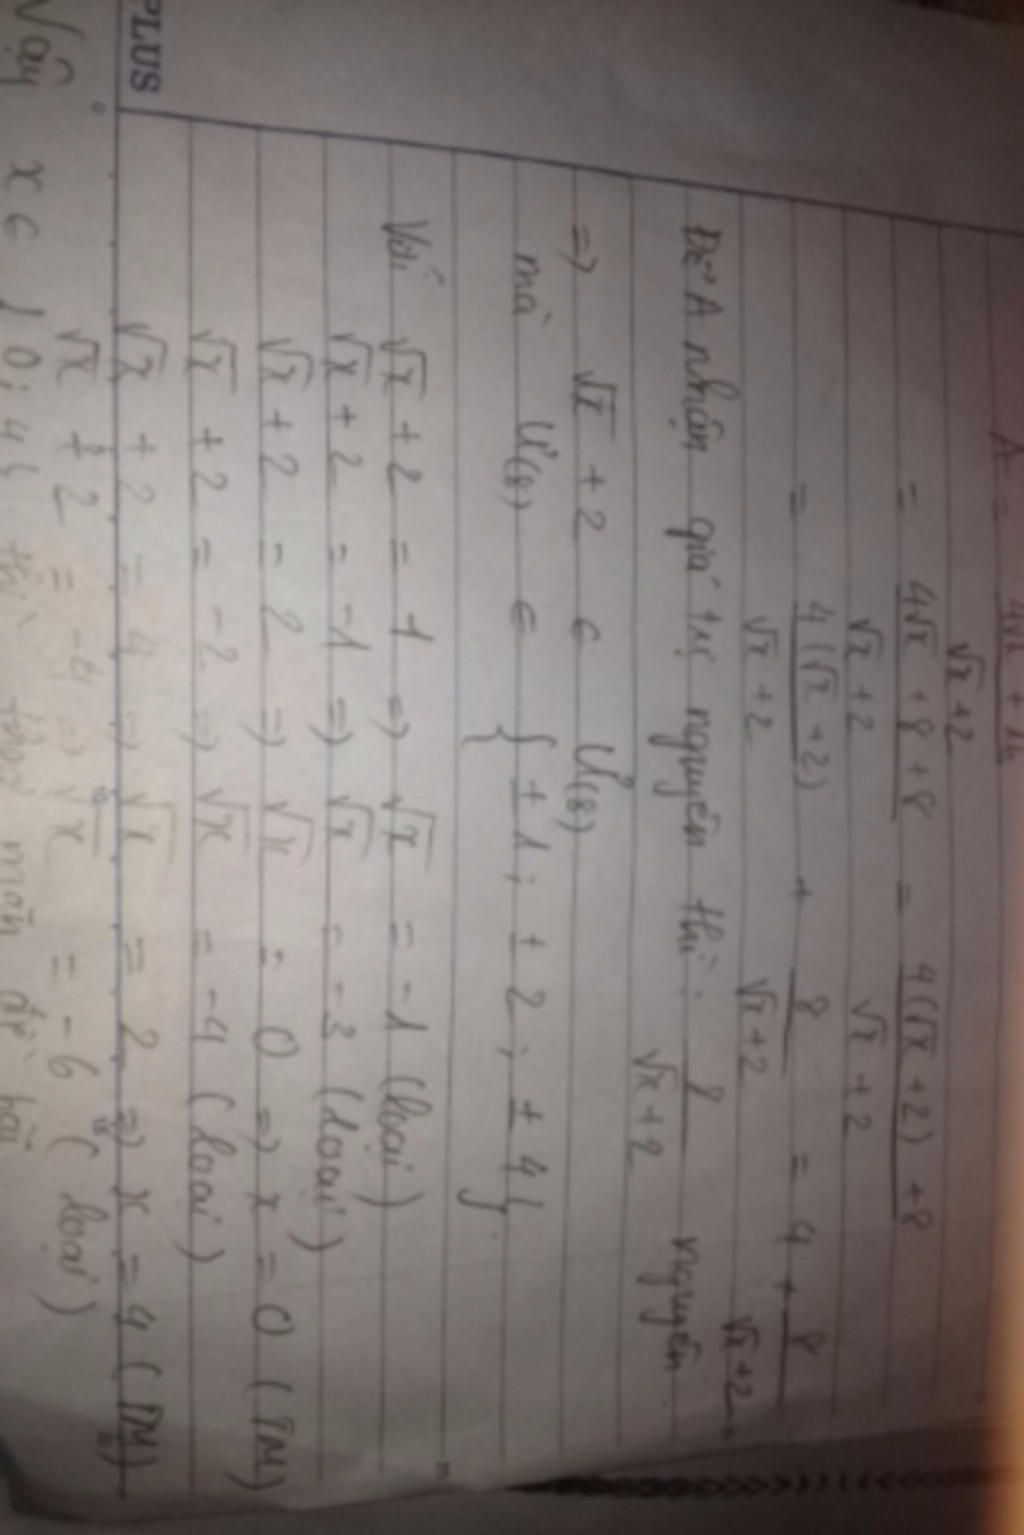 A = 4√x + 16 / √x + 2
= 4√x + 8 + 8 / √x + 2 = 4(√x + 2) + 8 / √x + 2
= 4(√x + 2) / √x + 2 + 8 / √x + 2 = 4 + 8 / √x + 2
Để A nhận giá trị nguyên thì: 8 / √x + 2 nguyên
=> √x + 2 ∈ Ư(8)
mà Ư(8) ∈ { ± 1; ± 2; ± 4}
Với √x + 2 = 1 => √x = -1 (loại)
√x + 2 = -1 => √x = -3 (loại)
√x + 2 = 2 => √x = 0 => x = 0 (TM)
√x + 2 = -2 => √x = -4 (loại)
√x + 2 = 4 => √x = 2 => x = 4 (TM)
√x + 2 = -4 => √x = -6 (loại)
Vậy x ∈ {0; 4} thì thoả mãn đề bài
PLUS